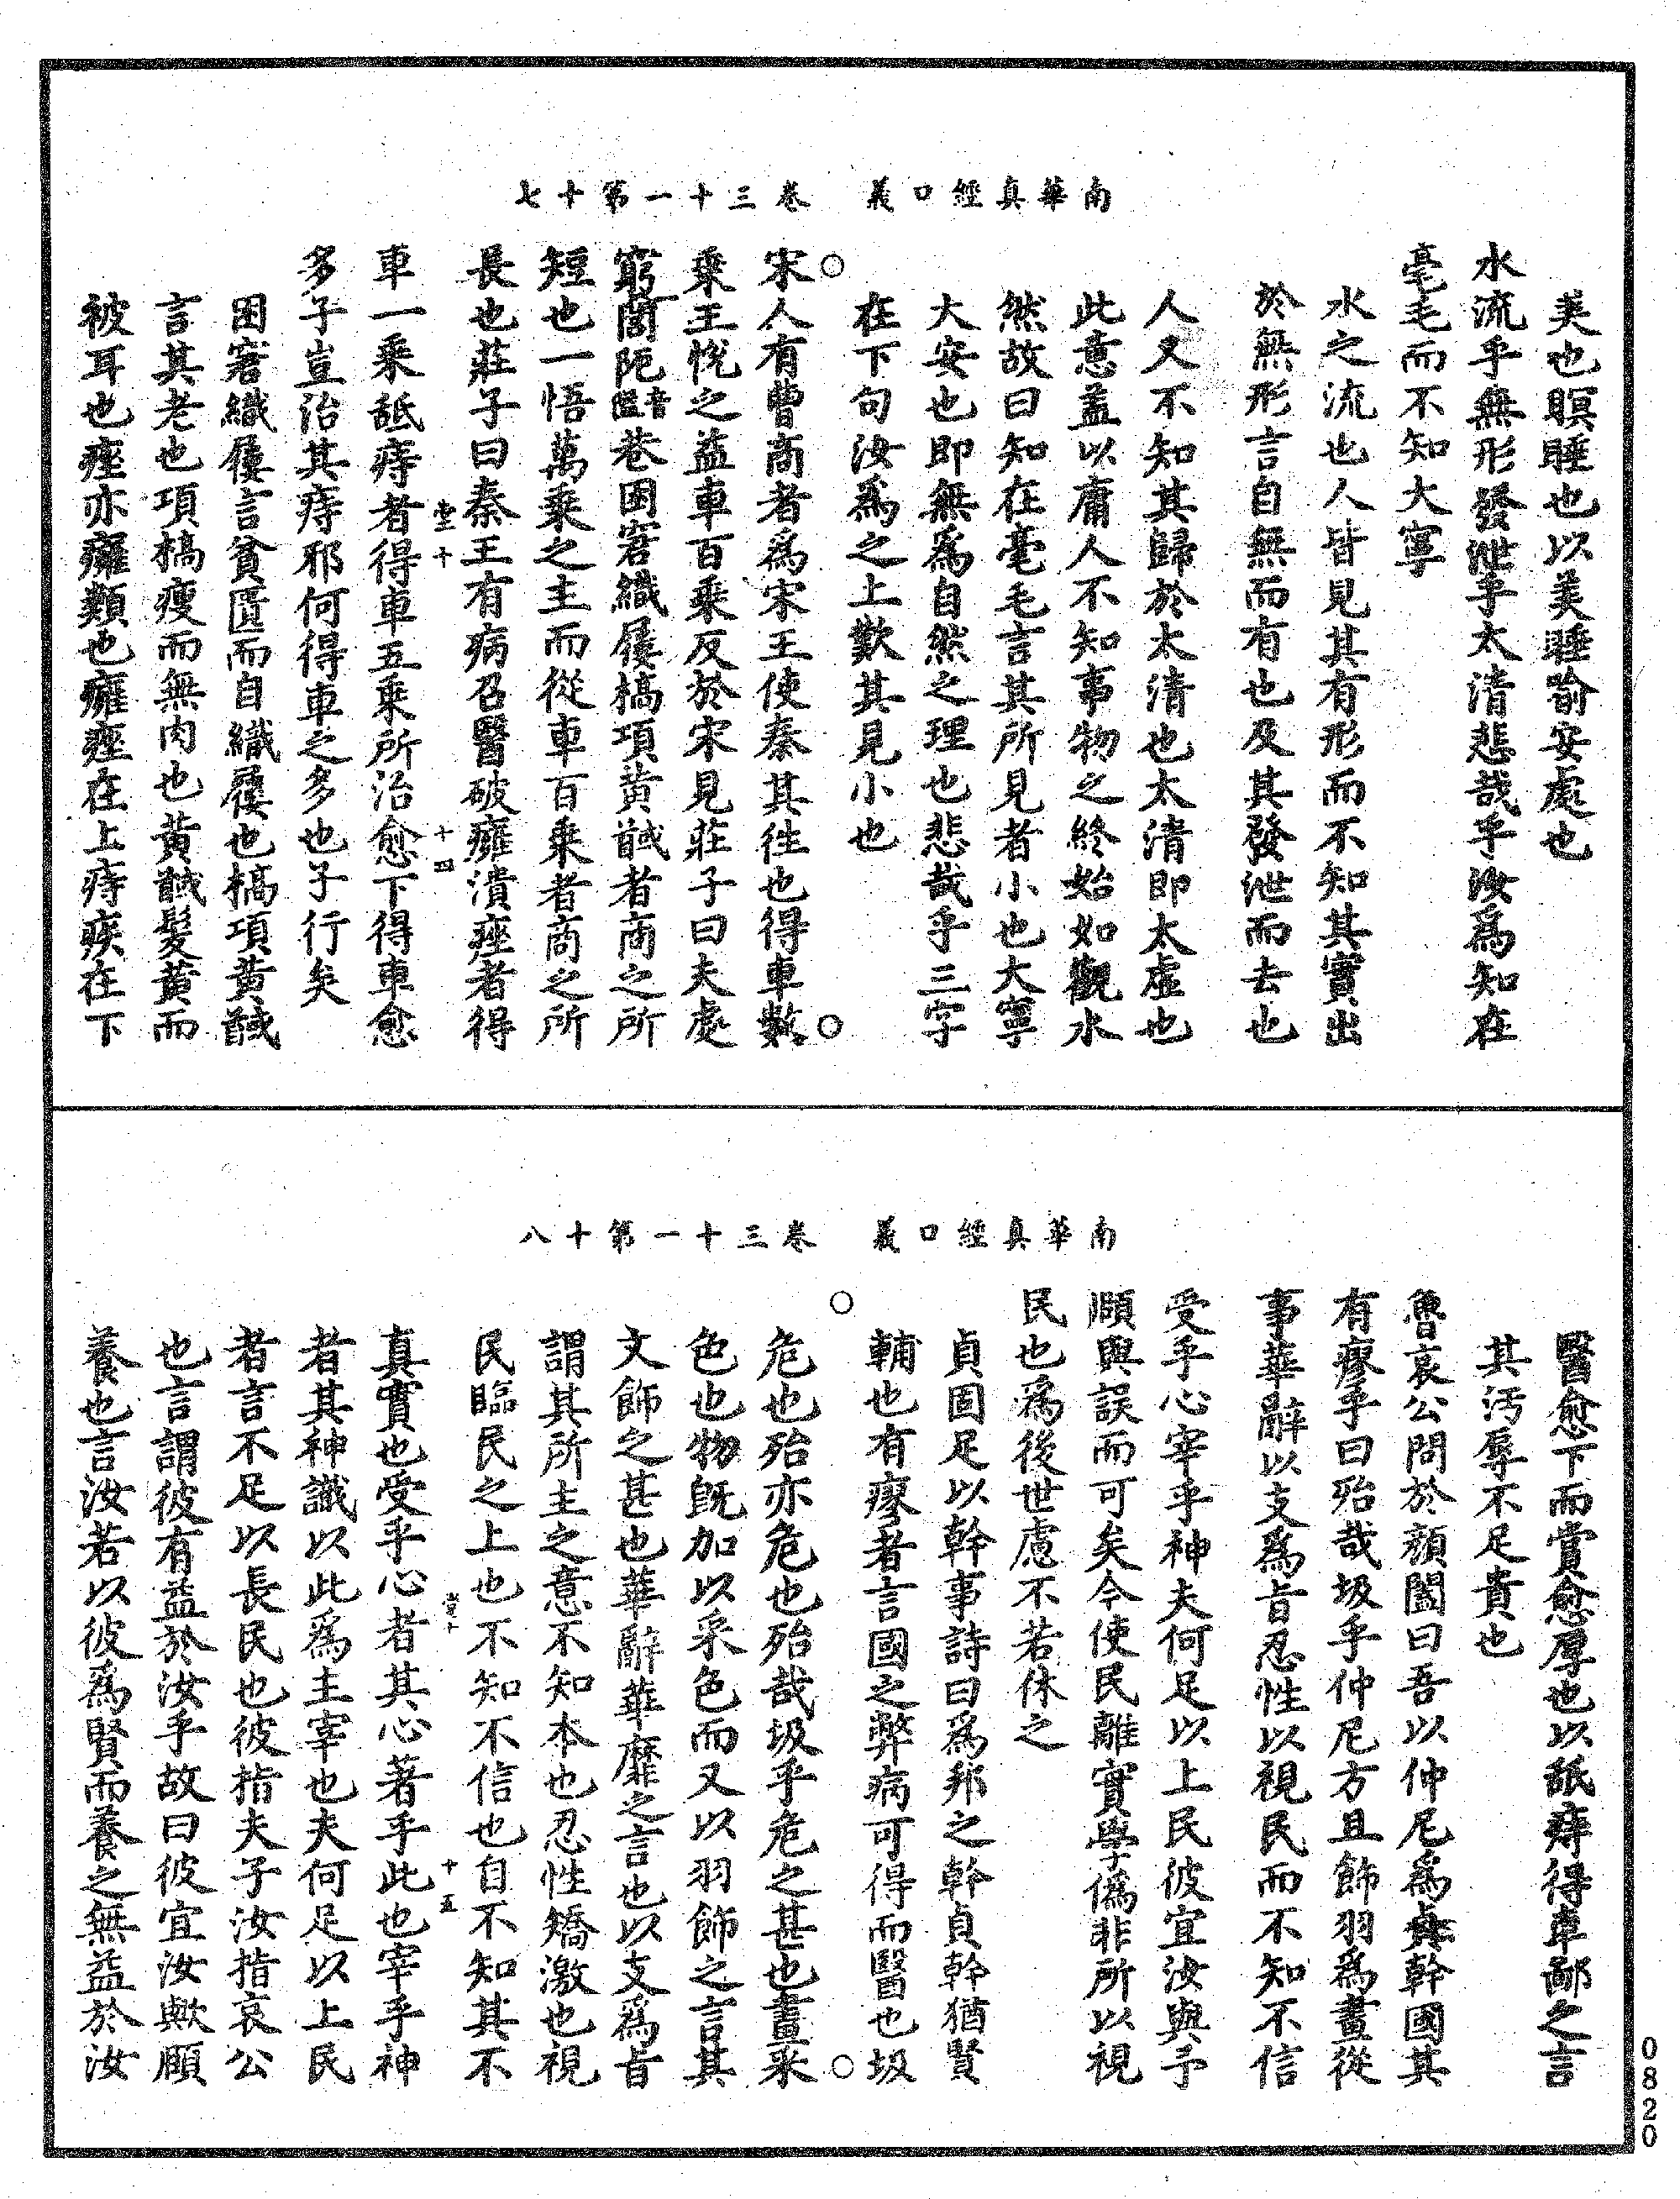 南華真經口義　卷三十一第十七
美也瞑睡也以美睡喻安處也
水流乎無形發泄乎太清悲哉乎汝爲知在
毫毛而不知大寧
水之流也人皆見其有形而不知其實出
於無形言自無而有也及其發泄而去也
人又不知其歸於太清也太清即太虛也
此意蓋以庸人不知事物之終始如觀水
然故曰知在毫毛言其所見者小也大寧
大安也即無爲自然之理也悲哉乎三字
在下句汝爲之上歎其見小也
宋人有曹商者爲宋王使秦其往也得車數
乘王悅之益車百乘反於宋見莊子曰夫處
窮閭阨音隘巷困窘織屨槁項黃馘者商之所
短也一悟萬乘之主而從車百乘者商之所
長也莊子曰秦王有病召醫破癰潰痤者得
車一乘舐痔者得車五乘所治愈下得車愈
多子豈治其痔邪何得車之多也子行矣
困窘織屨言貧匱而自織屨也槁項黃馘
言其老也項槁瘦而無肉也黃馘髮黃而
被耳也痤亦癰類也癰痤在上痔疾在下
南華真經口義　卷三十一第十八
醫愈下而賞愈厚也以舐痔得車鄙之言
其汚辱不足貴也
魯哀公問於顏闔曰吾以仲尼爲貞幹國其
有瘳乎曰殆哉圾乎仲尼方且飾羽爲畫從
事華辭以支爲旨忍性以視民而不知不信
受乎心宰乎神夫何足以上民彼宜汝與予
頤與誤而可矣今使民離實學僞非所以視
民也爲後世慮不若休之
貞固足以幹事詩曰爲邦之幹貞幹猶賢
輔也有瘳者言國之弊病可得而醫也圾
危也殆亦危也殆哉圾乎危之甚也畫采
色也物旣加以采色而又以羽飾之言其
文飾之甚也華辭華靡之言也以支爲旨
謂其所主之意不知本也忍性矯激也視
民臨民之上也不知不信也自不知其不
真實也受乎心者其心著乎此也宰乎神
者其神識以此爲主宰也夫何足以上民
者言不足以長民也彼指夫子汝指哀公
也言謂彼有益於汝乎故曰彼宜汝歟頤
養也言汝若以彼爲賢而養之無益於汝
0820